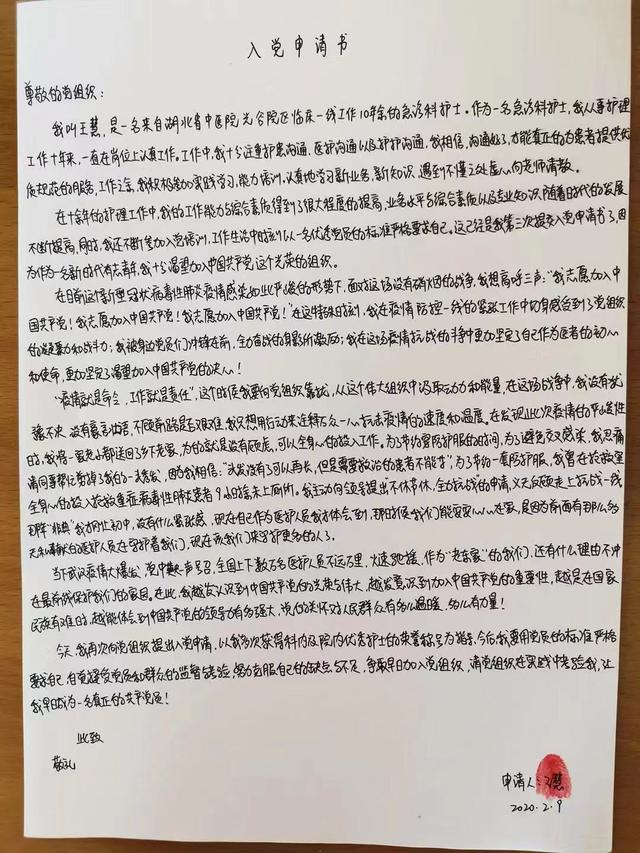 入党申请书
尊敬的党组织：
我叫王慧，是一名来自湖北省中医院光谷院区临床一线工作10年余的急诊科护士。作为一名急诊科护士，我从事护理
工作十年来，一直在岗位上认真工作。工作中，我十分注重护患沟通、医护沟通以及护护沟通，我相信，沟通好了，才能真正的为患者提供优
质规范的服务，工作之余，我积极参加实践学习，能力培训，认真地学习新业务，新知识，遇到不懂之处虚心向老师请教。
在十余年的护理工作中，我的工作能力与综合素质得到了很大程度的提高，业务水平与综合素质以及专业知识，随着时代的发展
不断提高，同时，我还不断参加入党培训，工作生活中时刻以一名优秀党员的标准严格要求自己。这已经是我第三次提交入党申请书了，因
为作为一名新时代有志青年，我十分渴望加入中国共产党这个光荣的组织。
在目前这个新型冠状病毒性肺炎疫情感染如此严峻的形势下，面对这场没有硝烟的战争，我想高呼三声："我志愿加入中
国共产党！我志愿加入中国共产党！我志愿加入中国共产党！"在这特殊时刻，我在疫情防控一线的紧张工作中切身感受到了党组织
的凝聚力和战斗力；我被身边党员们冲锋在前，全力奋战的身影所激励；我在这场疫情抗战的斗争中更加坚定了自己作为医者的初心
和使命，更加坚定了渴望加入中国共产党的决心！
"疫情就是命令，工作就是责任"，这个时候我要向党组织靠拢，从这个伟大组织中汲取动力和能量，在这场战争中，我没有犹
豫不决，没有豪言壮语，不顾前路是否艰难，我只想用行动来诠释众人一心抗击疫情的速度和温度。在发现此次疫情的严峻性
时，我将一家老小都送回了乡下老家，为的就是没有顾虑，可以全身心的投入工作。为了节约穿防护服的时间，为了避免交叉感染，我忍痛
请同事帮忙剪掉了我的一头秀发，因为我相信："头发没有了可以再长，但是需要救治的患者不能等"，为了节约一套防护服，我曾在抢救室
全身心的投入抢救重症病毒性肺炎患者9小时未上厕所。我主动向领导提出不休节休，全力抗战的申请，义无反顾走上抗战一线
那年"非典"我才刚上初中，没有什么紧张感，现在自己作为医护人员我才体会到，那时候我们能安安心心在家，是因为前面有那么多
无私奉献的医护人员在守护着我们，现在该我们来守护更多的人了。
当下武汉疫情大爆发，党中央一声号召，全国上下数万名医护人员不远万里，火速驰援，作为"老东家"的我们，还有什么理由不冲
在最前线保护我们的家园。在此，我越发认识到中国共产党的光荣与伟大，越发意识到加入中国共产党的重要性，越是在国家
民族有难时，越能体会到中国共产党的领导力有多强大，党的关怀对人民群众有多么温暖，多么有力量！
今天，我再次向党组织提出入党申请，以我多次获得科内及院内优秀护士的荣誉称号为指示，今后我要用党员的标准严格
要求自己，自觉接受党员和群众的监督与考验，努力克服自己的缺点与不足，争取早日加入党组织，请党组织在实践中考验我，让
我早日成为一名真正的共产党员！
此致
敬礼
申请人：王慧
2020.2.9